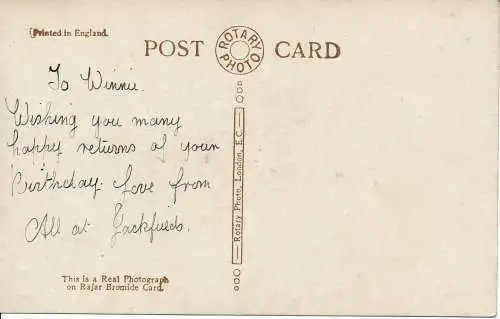 Printed in England.
POST CARD
ROTARY PHOTO
To Winnie.
Wishing you many
happy returns of your
Birthday. Love from
All at Jackfields.
Rotary Photo, London, E.C.
This is a Real Photograph
on Rajar Bromide Card.